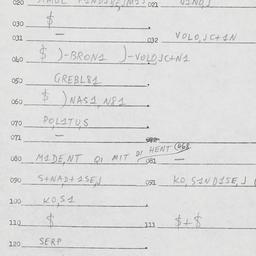 020 021
030 $
031 — 032 VOLO,JC+1N
040 $ )-BRON1 )-VOLO,JC+N1
050 GREBL81
060 $ ) NAS1, N81
070 POL1TUS
071 —
080 M1DE,NT QI MIT DI HENT 068
081 —
090 S+NAD+1SE,J 091 KO,S1ND1SE,J
100 KO,S1
110 $ 111 $+$
120 SERP